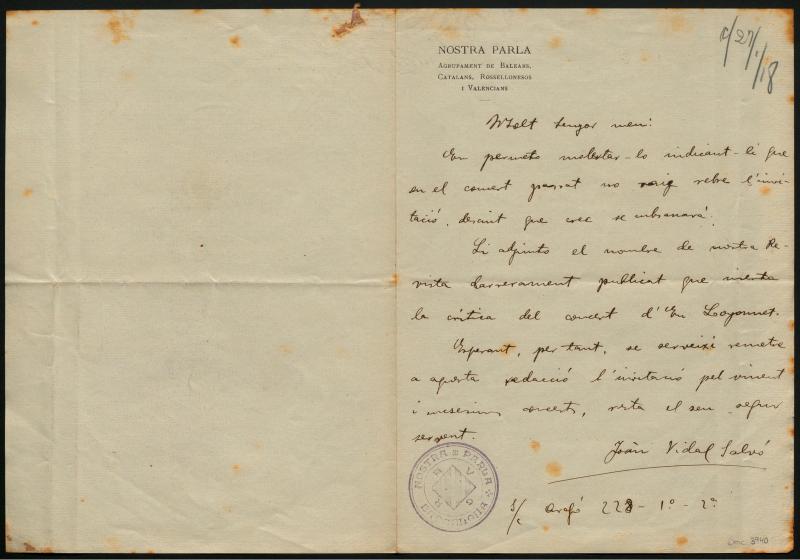 NOSTRA PARLA
AGRUPAMENT DE BALEARS,
CATALANS, ROSSELLONESOS
I VALENCIANS
27/1/18
Molt senyor meu:
Em permeto molestar-lo indicant-li que
en el concert passat no vaig rebre l'invi-
tació, descuit que crec se subsanará.
Li adjunto el nombre de nostra Re-
vista darrerament publicat que inserta
la crítica del concert d'En Loyonnet.
Esperant, per tant, se serveixi remetre
a aquesta redacció l'invitació pel vinent
i concerts, resta el seu segur
servent.
Joàn Vidal Salvó
NOSTRA PARLA
BARCELONA
s/c Aragó 228-1º-2ª
Doc. 3940